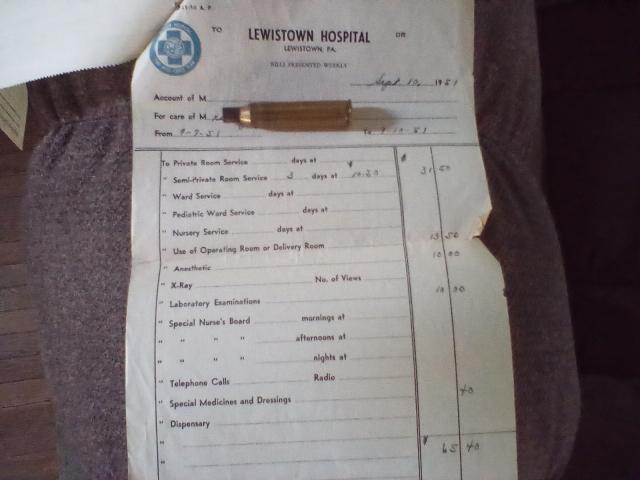 TO LEWISTOWN HOSPITAL OR
LEWISTOWN, PA.
BILLS PRESENTED WEEKLY
Sept 10, 1951
Account of M
For care of M
From 9-7-51 To 9-10-51
To Private Room Service days at $ $
" Semi-Private Room Service 3 days at 10.50 31 50
" Ward Service days at
" Pediatric Ward Service days at
" Nursery Service days at
" Use of Operating Room or Delivery Room 13 50
" Anesthetic 10 00
" X-Ray No. of Views
" Laboratory Examinations 10 00
" Special Nurse's Board mornings at
" " " " afternoons at
" " " " nights at
" Telephone Calls Radio
" Special Medicines and Dressings 40
" Dispensary
" $ 65 40
"